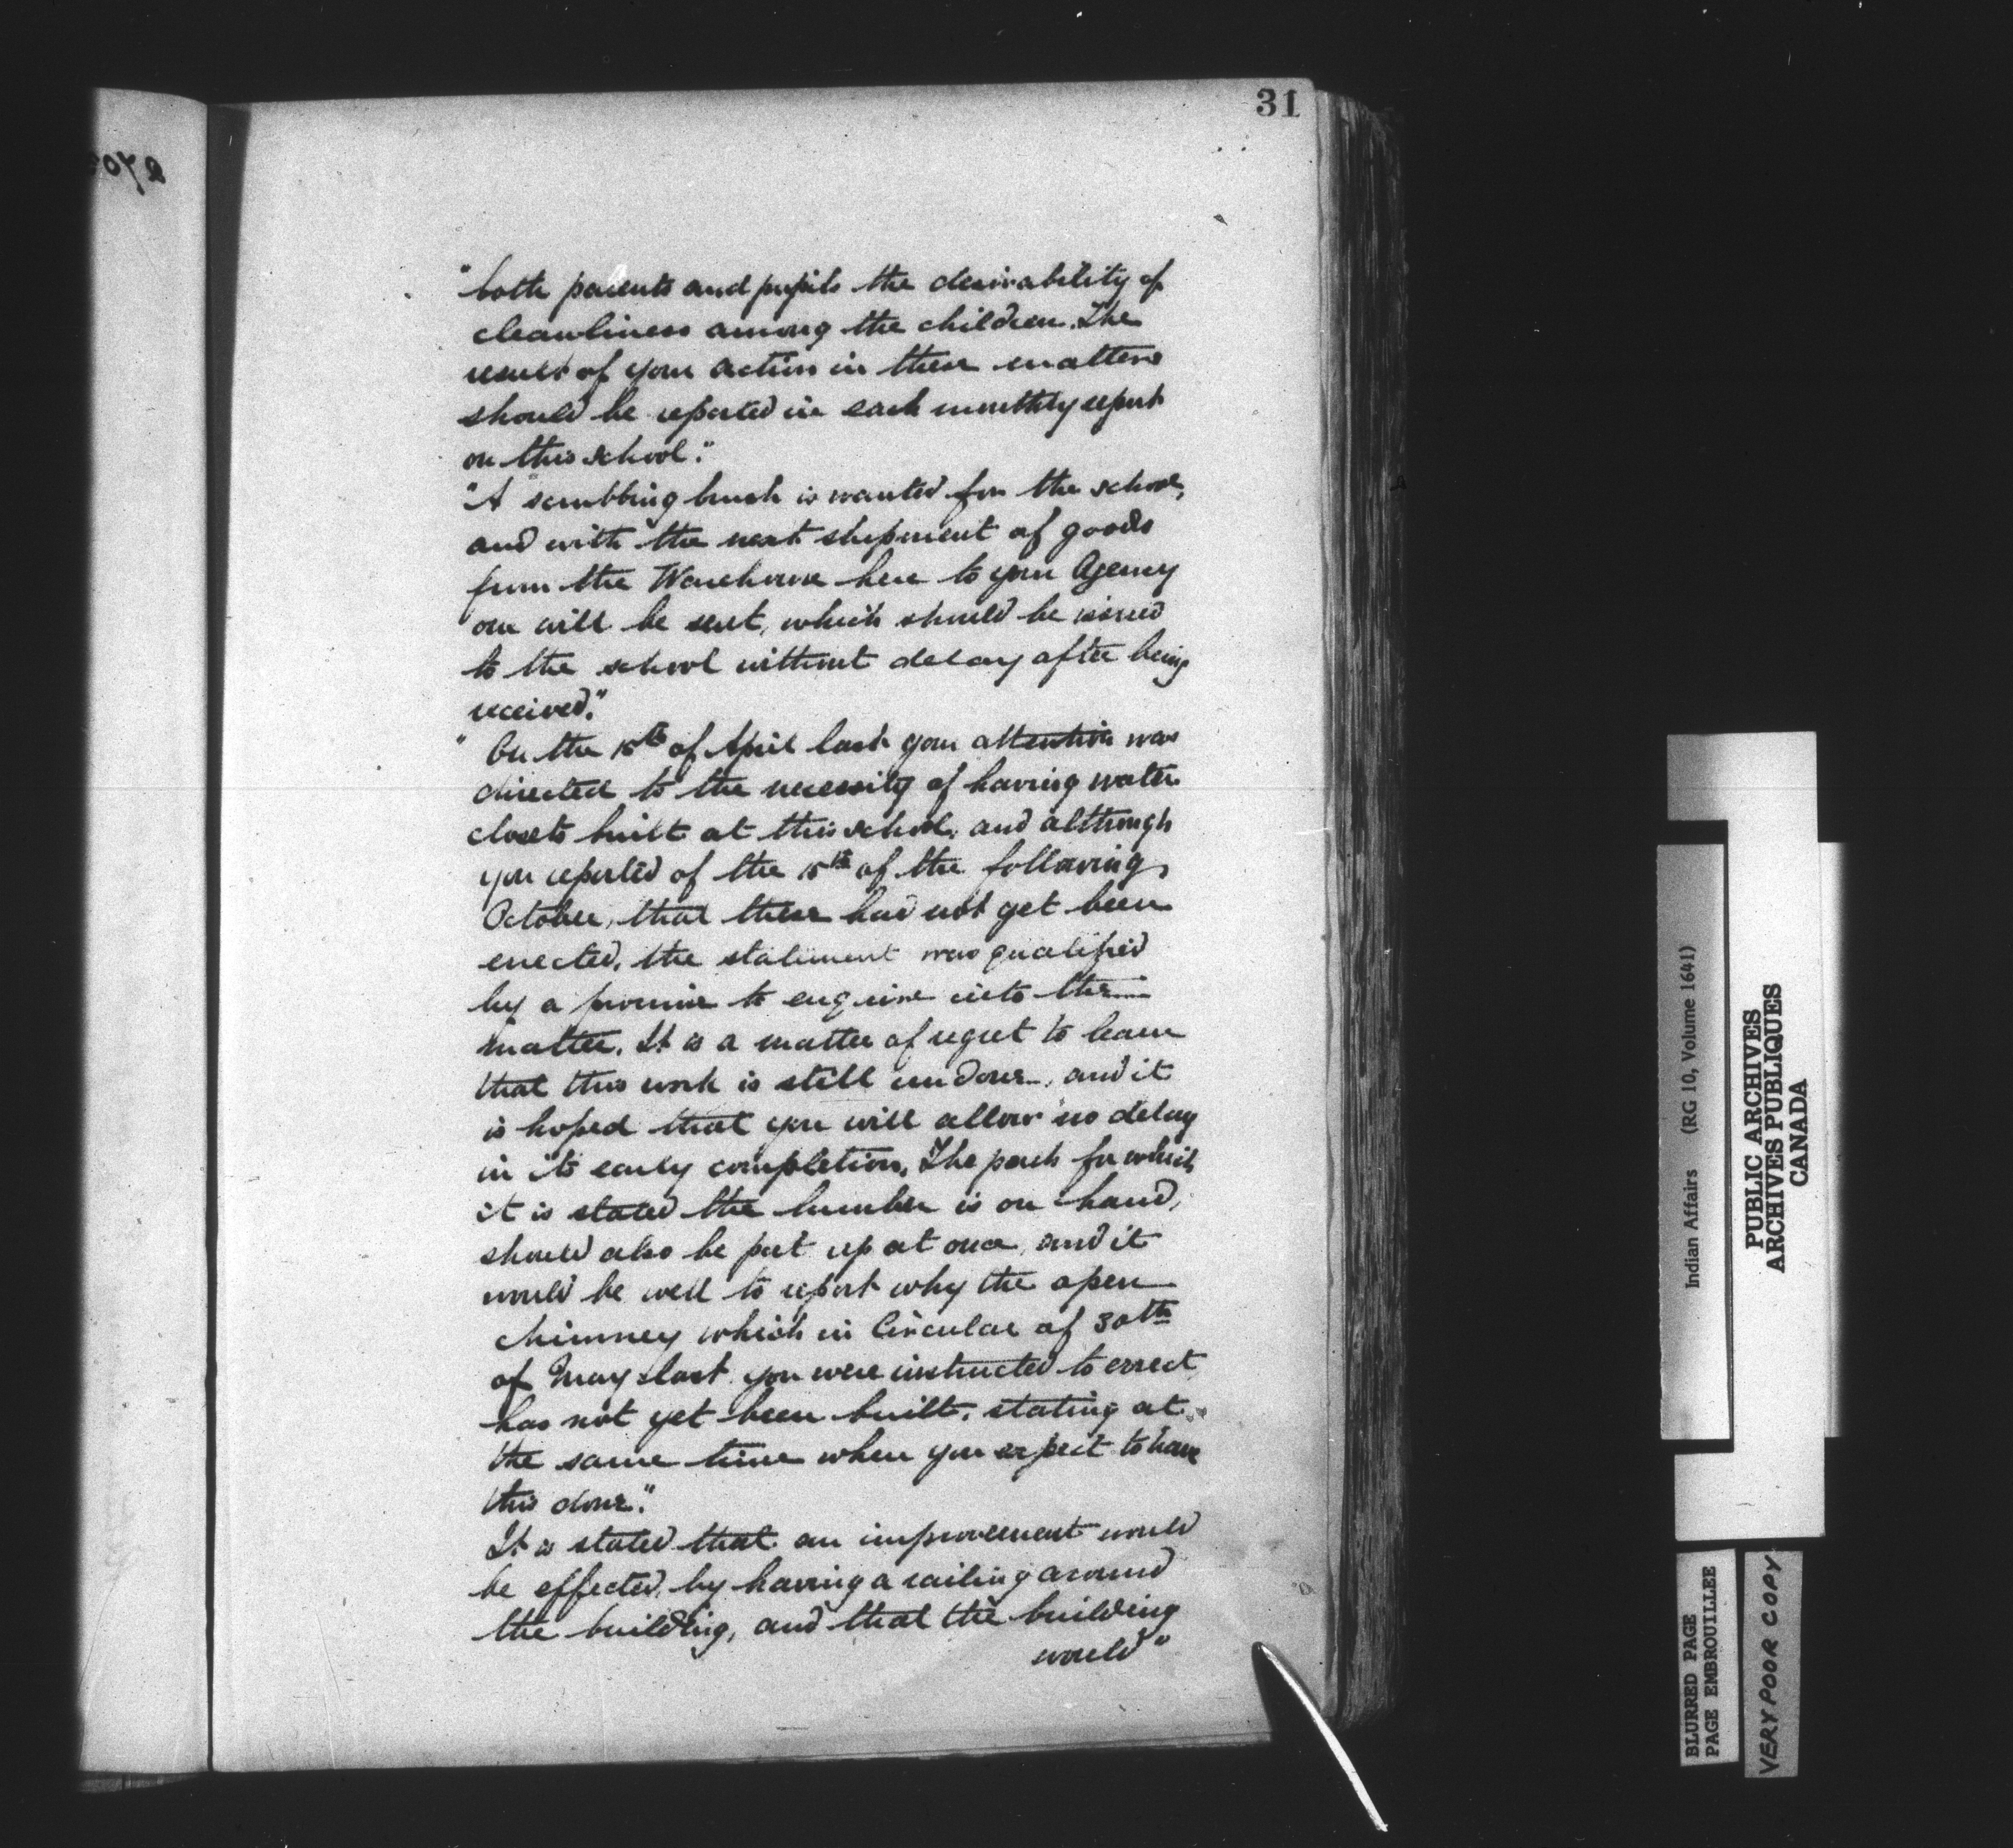 31
"both parents and pupils the desirability of
cleanliness among the children. The
result of your action in these matters
should be reported in each monthly report
on this school."
"A scrubbing brush is wanted for the school,
and with the next shipment of goods
from the Warehouse here to your Agency
one will be sent, which should be issued
to the school without delay after being
received."
"On the 15th of April last your attention was
directed to the necessity of having water
closets built at this school, and although
you reported of the 15th of the following
October, that these had not yet been
erected, the statement was qualified
by a promise to enquire into the
matter. It is a matter of regret to learn
that this work is still undone, and it
is hoped that you will allow no delay
in its early completion. The porch for which
it is stated the lumber is on hand,
should also be put up at once, and it
would be well to report why the open
chimney which in Circular of 30th
of May last you were instructed to errect,
has not yet been built, stating at
the same time when you expect to have
this done."
It is stated that an improvement would
be effected, by having a railing around
the building, and that the building
would"
Indian Affairs (RG 10, Volume 1641)
PUBLIC ARCHIVES
ARCHIVES PUBLIQUES
CANADA
BLURRED PAGE
PAGE EMBROUILLEE
VERY POOR COPY